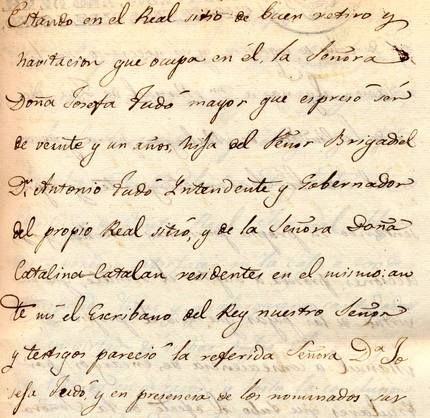 Estando en el Real sitio de buen retiro y
havitacion que ocupa en él, la Señora
Doña Josefa Tudó mayor que espresó ser
de veinte y un años, hija del Señor Brigadiel
Dn. Antonio Tudó Intendente y Gobernador
del propio Real sitio, y de la Señora Doña
Catalina Catalan residentes en el mismo: an
te mi el Escribano del Rey nuestro Señor
y testigos pareció la referida Señora Da. Jo
sefa Tudó, y en presencia de los nominados sus